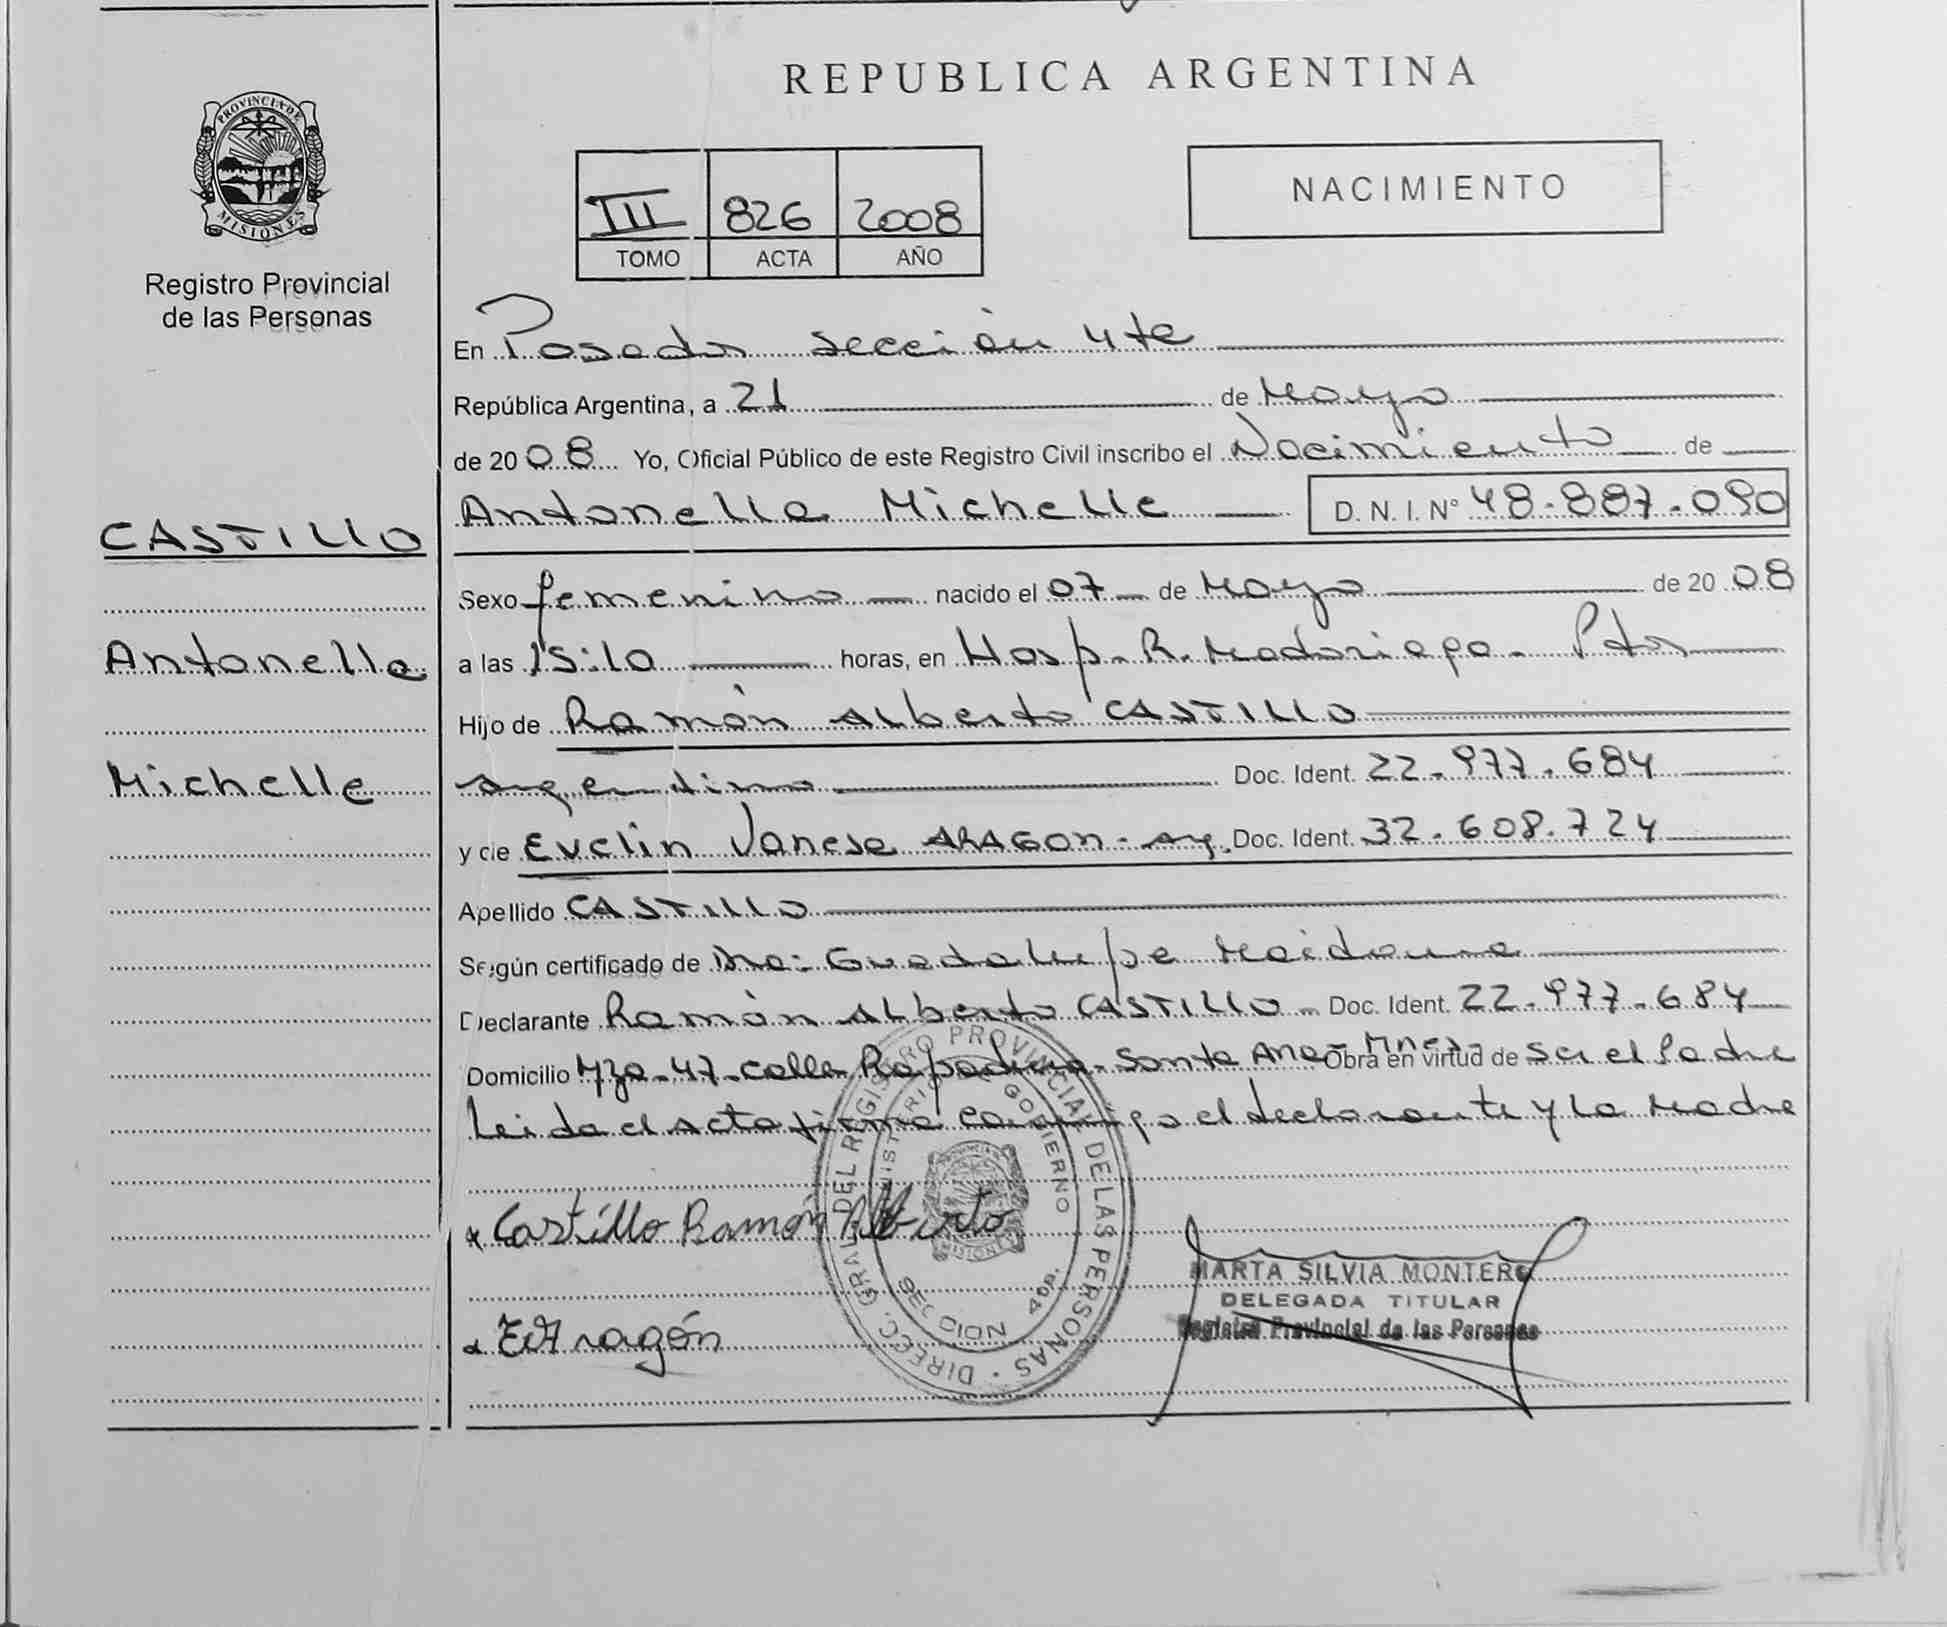 REPUBLICA ARGENTINA
PROVINCIA DE
MISIONES
Registro Provincial
de las Personas
NACIMIENTO
III 826 2008
TOMO ACTA AÑO
En Posadas sección 4ta
República Argentina, a 21 de Mayo
de 2008 Yo, Oficial Público de este Registro Civil inscribo el Nacimiento de
Antonella Michelle D. N. I. N° 48.887.090
CASTILLO
Antonella
Michelle
Sexo femenino nacido el 07 de Mayo de 2008
a las 15:10 horas, en Hosp. R. Madariaga - Pdas
Hijo de Ramón Alberto CASTILLO
argentino Doc. Ident. 22.977.684
y de Evelin Vanesa ARAGON - arg. Doc. Ident. 32.608.724
Apellido CASTILLO
Según certificado de Dra: Guadalupe Maidana
Declarante Ramón Alberto CASTILLO - Doc. Ident. 22.977.684
Domicilio Mza-47-calle - Santa Ana - Mnes. Obra en virtud de ser el Padre
Leida el acta firma conmigo el declarante y la Madre
x Castillo Ramón Alberto
x E.V.Aragón
DIREC. GRAL. DEL REGISTRO PROVINCIAL DE LAS PERSONAS
MINISTERIO GOBIERNO
MISIONES
SECCION 4
MARTA SILVIA MONTERO
DELEGADA TITULAR
Registro Provincial de las Personas